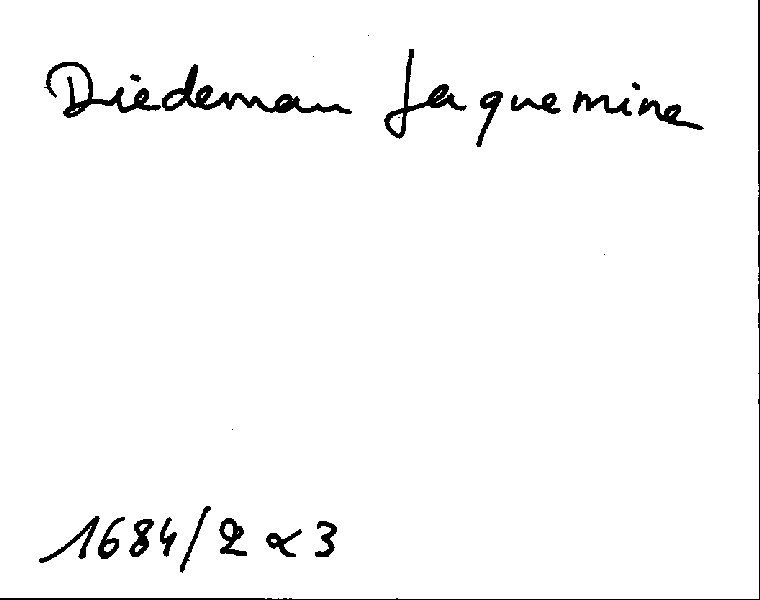 Diedeman Jaquemine
1684/2 α 3